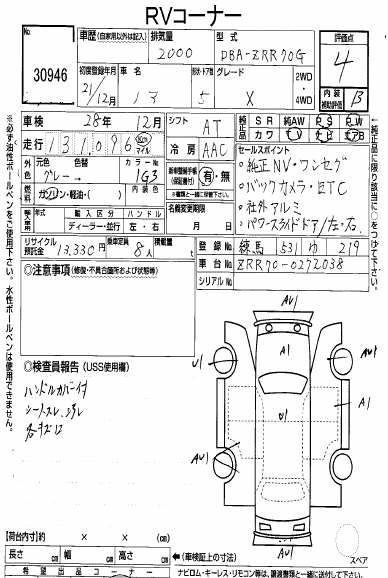 RVコーナー
出品番号
30946
車歴(自家用以外は記入) 排気量 型式
2000 DBA-ZRR70G
評価点
4
初度登録年月 車名 形状・ドア数 グレード
21/12月 ノア 5 X
2WD
4WD
内装
補助評価
B
車検 28年 12月
シフト AT
純正品
SR 純AW PS PW
カワ TV ナビ エアB
走行 131096
km
マイル
冷房 AAC
セールスポイント
・純正NV・ワンセグ
・バックカメラ・ETC
・社外アルミ
・パワースライドドア/左右
外色 元色 色替 カラーNo
グレー→ 1G3
新車整備手帳
(保証書付)
有・無
燃料 ガソリン・軽油・( ) 内装色
名義変更期限
月 日
輸入車 年式 輸入区分 ハンドル
ディーラー・並行 左・右
リサイクル預託金 13,330円 乗車定員 8人 積載量 t
登録No 練馬 531 ゆ 219
車台No ZRR70-0272038
シリアルNo
◎注意事項(修復・不具合箇所および状態等)
◎検査員報告(USS使用欄)
ハンドルカバー付
シートスレ、汚れ
各キズ凹
AU1
A1
U1
AU1
U1
A1
AU1
AU1
AU1
スペア
【荷台内寸】 × × (cm)
長さ cm 幅 cm 高さ cm
←(車検証上の寸法)
希望出品コーナー
ナビロム・キーレス・リモコン等は、譲渡書類と一緒に送付して下さい。
※必ず油性ボールペンをご使用下さい。水性ボールペンは使用できません。